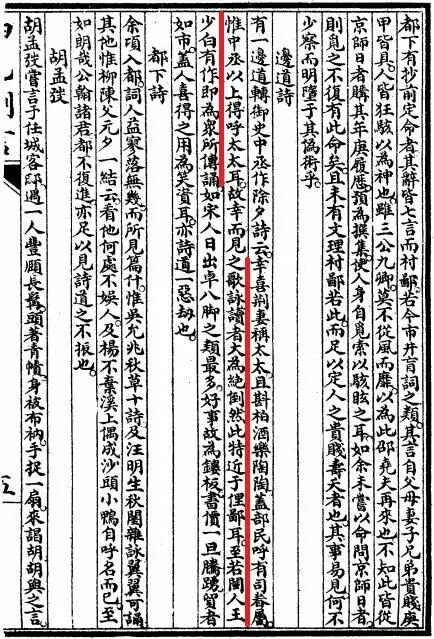 都下有抄前定命者其辭皆七言而村鄙若今市井盲詞之類其言自父母妻子兄弟貴賤庚
甲皆具人皆狂駭以為神也雖三公九卿莫不從風而靡以為此邵堯夫再來也不知此皆從
京師日者購其年庚履歷預為撰集使人身自覓索以駭眩之耳如余未嘗以命問京師日者
則覓之不復有此命矣且未有文理村鄙若此而足以定人之貴賤壽夭者也其事易見何不
少察而明墮于其偽術乎
邊道詩
有一邊道轉御史中丞作除夕詩云幸喜荊妻稱太太且斟柏酒樂陶陶蓋部民呼有司眷屬
惟中丞以上得呼太太耳故幸而見之歌詠讀者大為絕倒然此特近于俚鄙耳至若閩人王
少白有作即為衆所傳誦如宋人日出卓八脚之類最多好事故為鏤板書價一旦騰踴貿者
如市蓋人喜得之用為笑資耳亦詩道一惡刼也
都下詩
余頃入都詞人益寥落無幾而所見篇什惟吳允兆秋草十詩及汪明生秋閨雜詠翼翼可誦
其他惟柳陳父元夕一結云看他何處不娛人及楊不棄溪上偶成沙頭小鴨自呼名而已至
如朗哉公翰諸君都不復進亦足以見詩道之不振也
胡孟弢
胡孟弢嘗言于任城客邸遇一人豐頤長鬚頭著青幘身被布衲手捉一扇來謁胡胡與之言
五